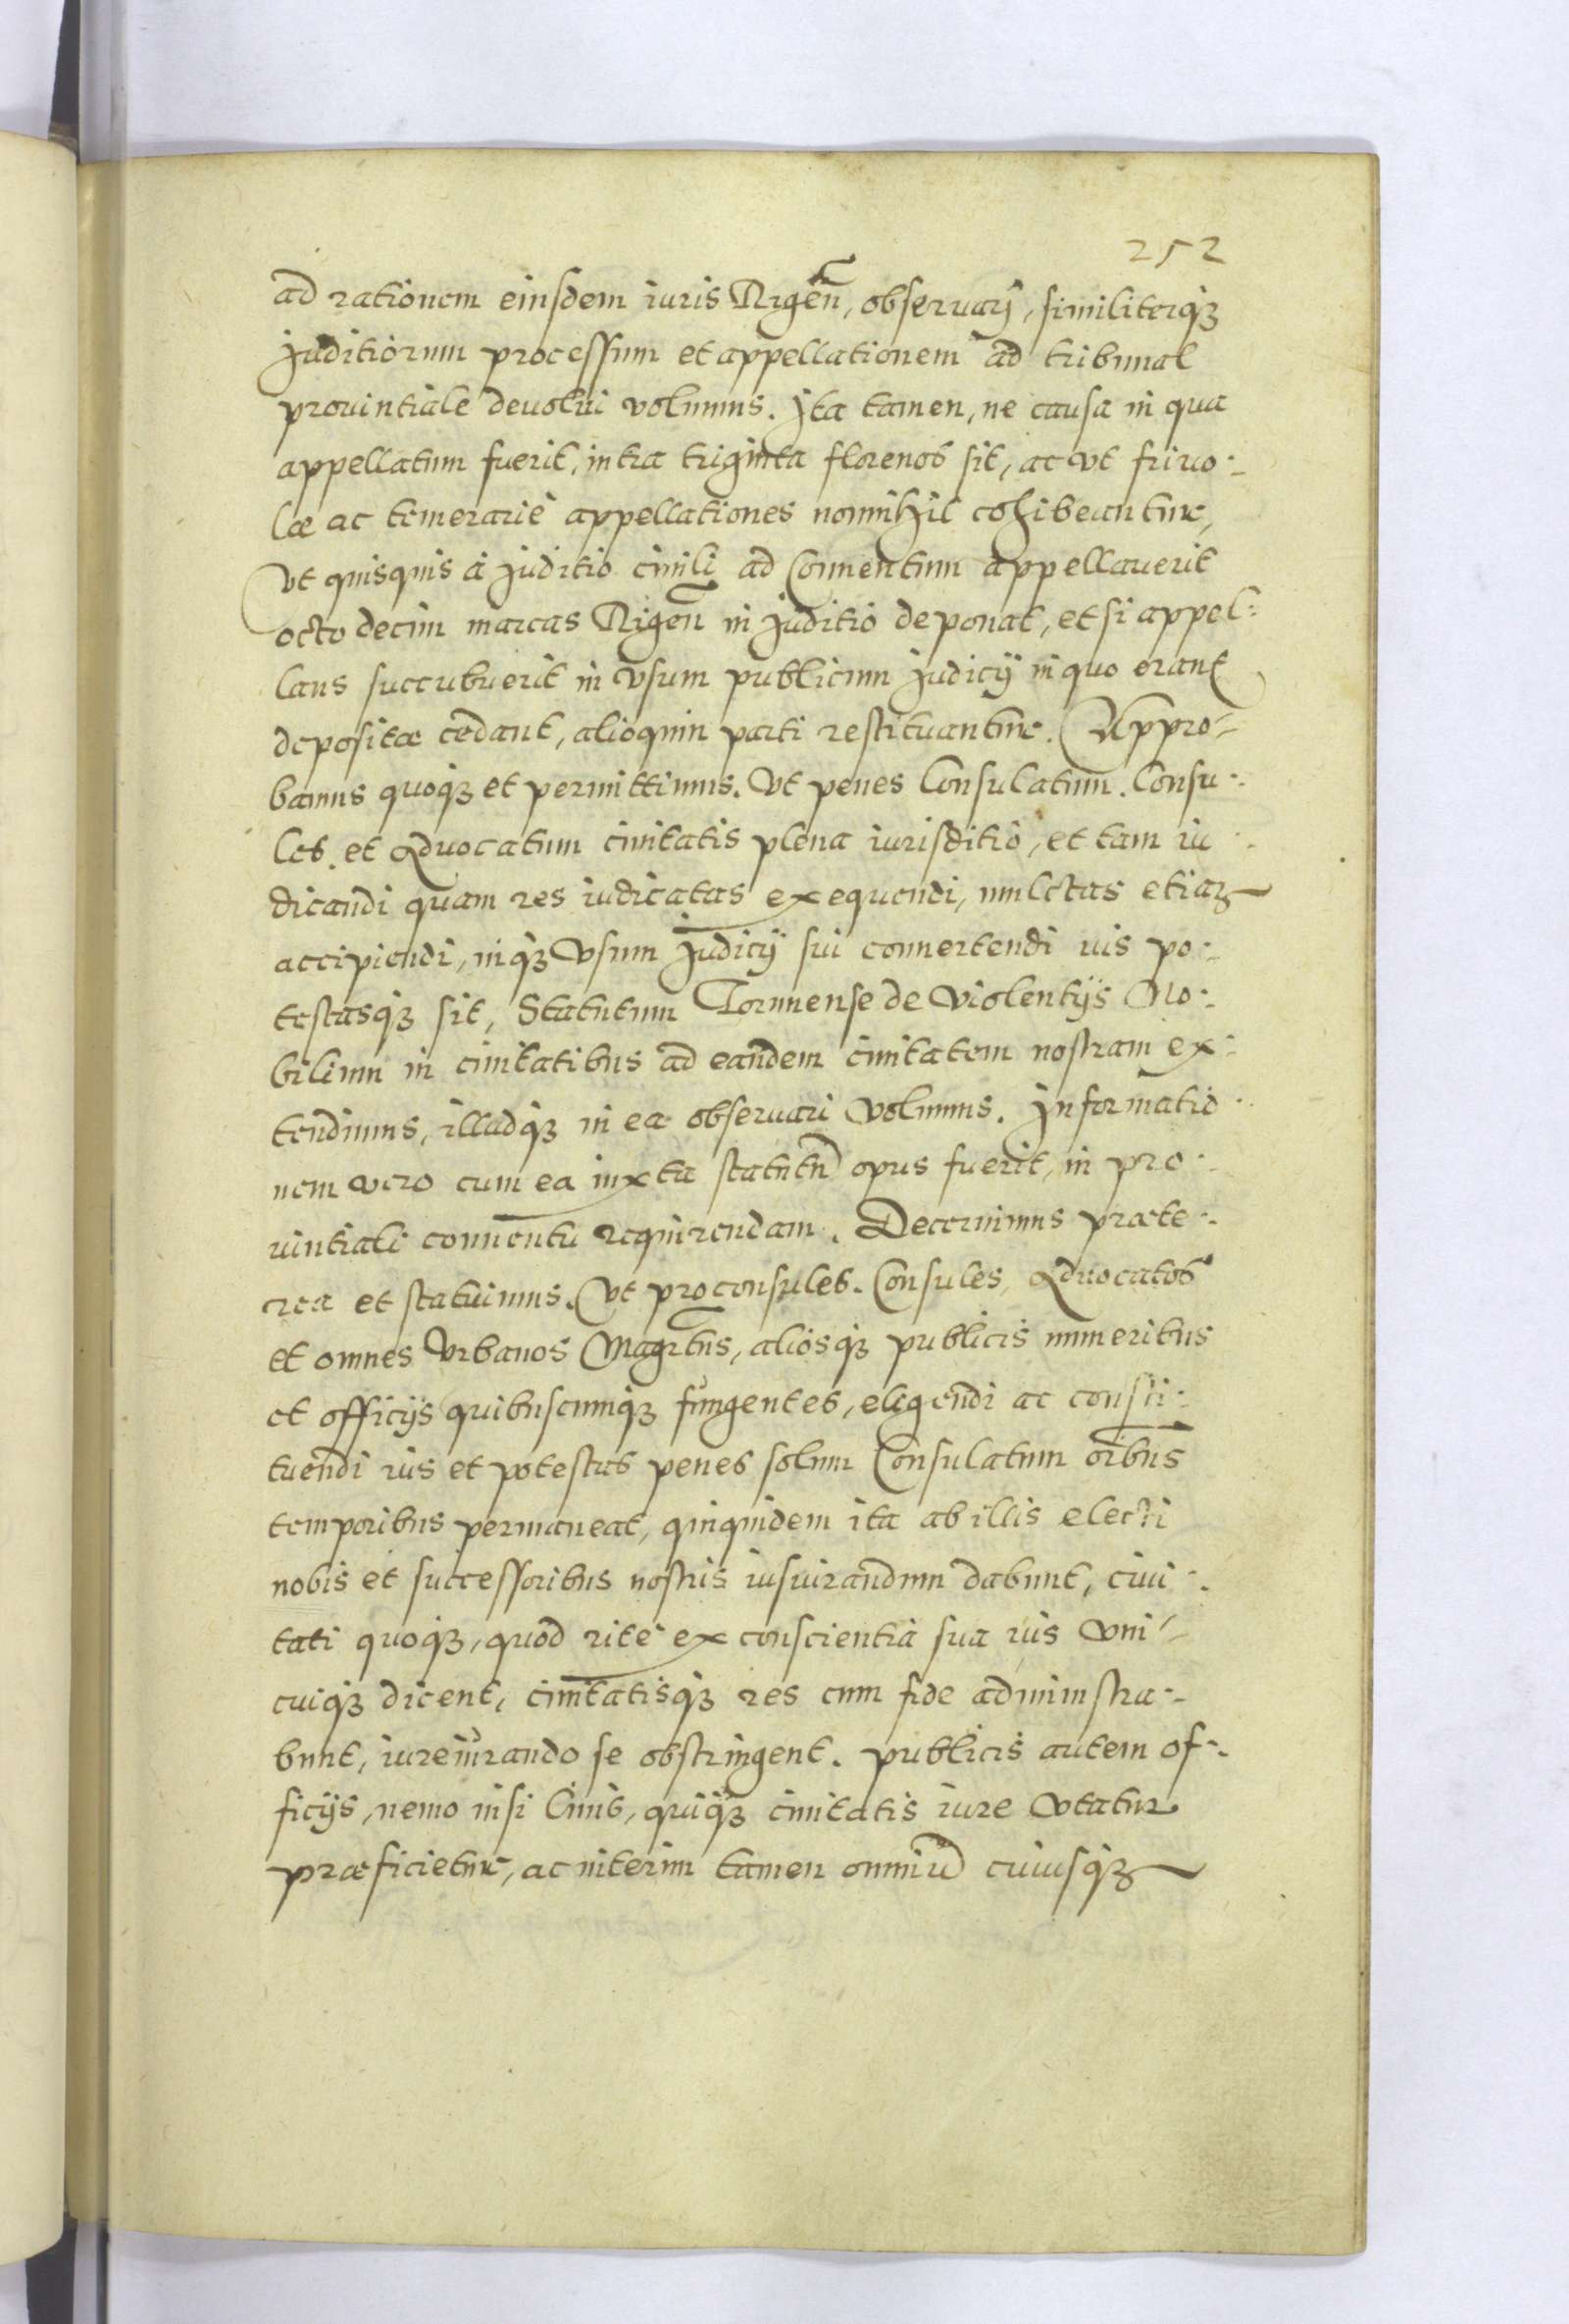 252
ad rationem eiusdem iuris Rigen̄, obseruarj, similiterq3
Juditiorum processum et appellationem ad tribunal
prouintiale deuolui volumus. Jta tamen, ne causa in qua
appellatum fuerit, intra triginta florenos sit, ac vt friuo:-
læ ac temerariè appellationes nonnihil cohibeantur,
Vt quisquis à Juditio ciuili ad Conuentum appellauerit
octo decim marcas Rigen̄ in Juditio deponat, et si appel:
lans succubuerit in vsum publicum Judicij in quo erant
depositæ cedant, alioquin parti restituantur. Appro-
bamus quoq3 et permittimus. Vt penes Consulatum. Consu:
les. et Aduocatum ciuitatis plena iurisditio, et tam iu:
dicandi quam res iudicatas exequendi, mulctas etia3
accipiendi, inq3 vsum Judicij sui conuertendi uis po:
testasq3 sit, Statutum Torunense de violentijs No:
bilium in ciuitatibus ad eandem ciuitatem nostram ex:
tendimus, illadq3 in ea obseruari volumus. Informatio:
nem vero cum ea iuxta statutū opus fuerit, in pro:
uintiali conuentu requirendam. Decernimus præte:
rea et statuimus. Vt proconsules. Consules, Aduocatos
et omnes Vrbanos Magrtus, aliosq3 publicis muneribus
et officijs quibuscunq3 fungentes, eligendi ac consti:
tuendi ius et potestas penes solum Consulatum oībus
temporibus permaneat, quiquidem ita ab illis electi
nobis et successoribus nostris iusiurandum dabunt, ciui:
tati quoq3, quod ritè ex conscientia sua ius vni-
cuiq3 dicent, ciuitatisq3 res cum fide administra:-
bunt, iureiurando se obstringent. publicis autem of:
ficijs, nemo nisi Ciuis, quiq3 ciuitatis iure vtatur
præficietur, ac interim tamen omniū cuiusq3